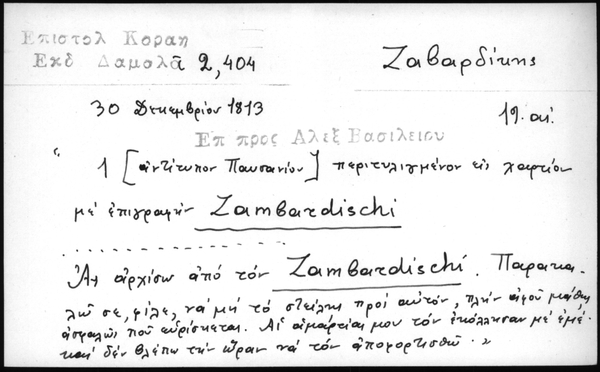 Επιστολ Κοραη
Εκδ Δαμαλᾶ 2,404
Ζαβαρδίκης
30 Δεκεμβρίου 1813
19. αἰ.
Επ προς Αλεξ Βασιλειου
“ 1 [ἀντίτυπον Παυσανίου] περιτυλιγμένον εἰς χαρτίον
μέ ἐπιγραφήν Zambardischi
..................
Ἄς ἀρχίσω ἀπό τόν Zambardischi. Παρακα-
λῶ σε, φίλε, νά μή τό στείλῃς πρός αὐτόν, πλήν ἀφοῦ μάθῃς
ἀσφαλῶς ποῦ εὑρίσκεται. Αἱ ἁμαρτίαι μου τόν ἐκόλλησαν μέ ἐμέ.
καί δέν βλέπω τήν ὥραν νά τόν ἀποφορτισθῶ. »